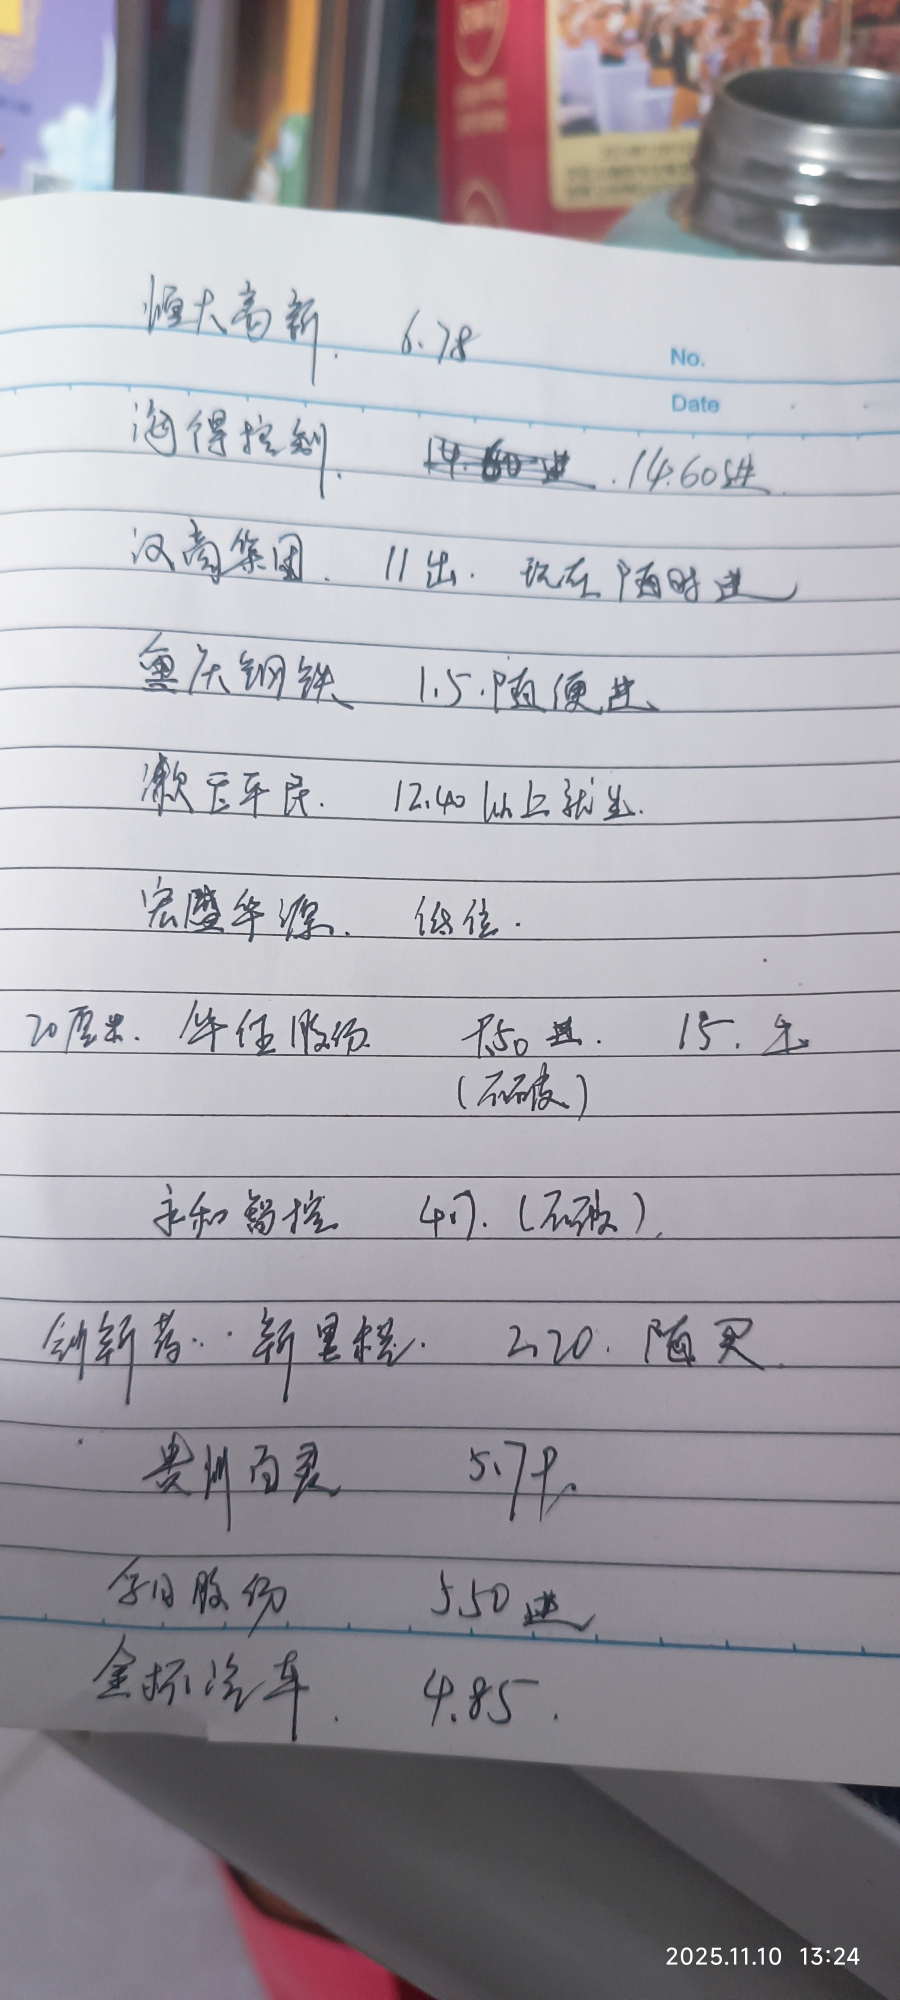 恒大高新. 6.78
No.
Date
海得控制. 14.60进.
汉商集团. 11出. 现在随时进
重庆钢铁 1.5.随便进.
漱玉平民. 12.40以上就出.
宏盛华源. 低位.
20厘米. 华任股份 50进. 15.
(不破)
永和智控 4.7. (不破).
创新药.. 新里程. 2.20. 随买.
贵州百灵 5.7
股份 5.50进
金杯汽车. 4.85.
2025.11.10 13:24